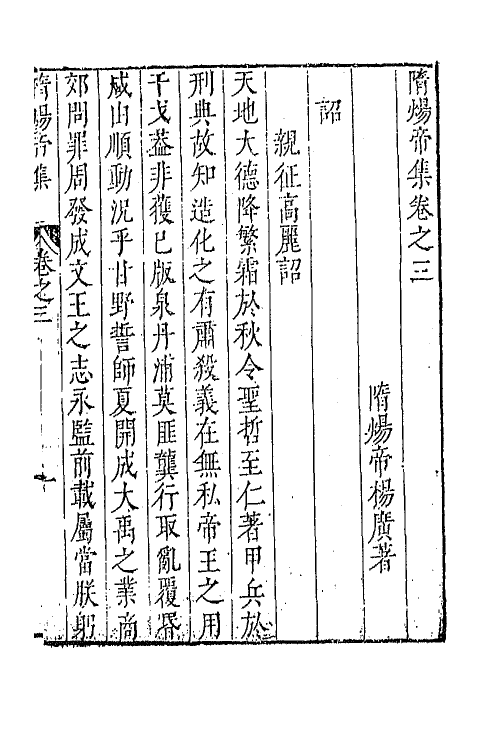 隋煬帝集卷之三
隋煬帝楊廣著
詔
親征高麗詔
天地大德降繁霜於秋令聖哲至仁著甲兵於
刑典故知造化之有肅殺義在無私帝王之用
干戈葢非獲已版泉丹浦莫匪龔行取亂覆昬
咸由順動況乎甘野誓師夏開成大禹之業商
郊問罪周發成文王之志永監前載屬當朕躬
隋煬帝集 卷之三 一